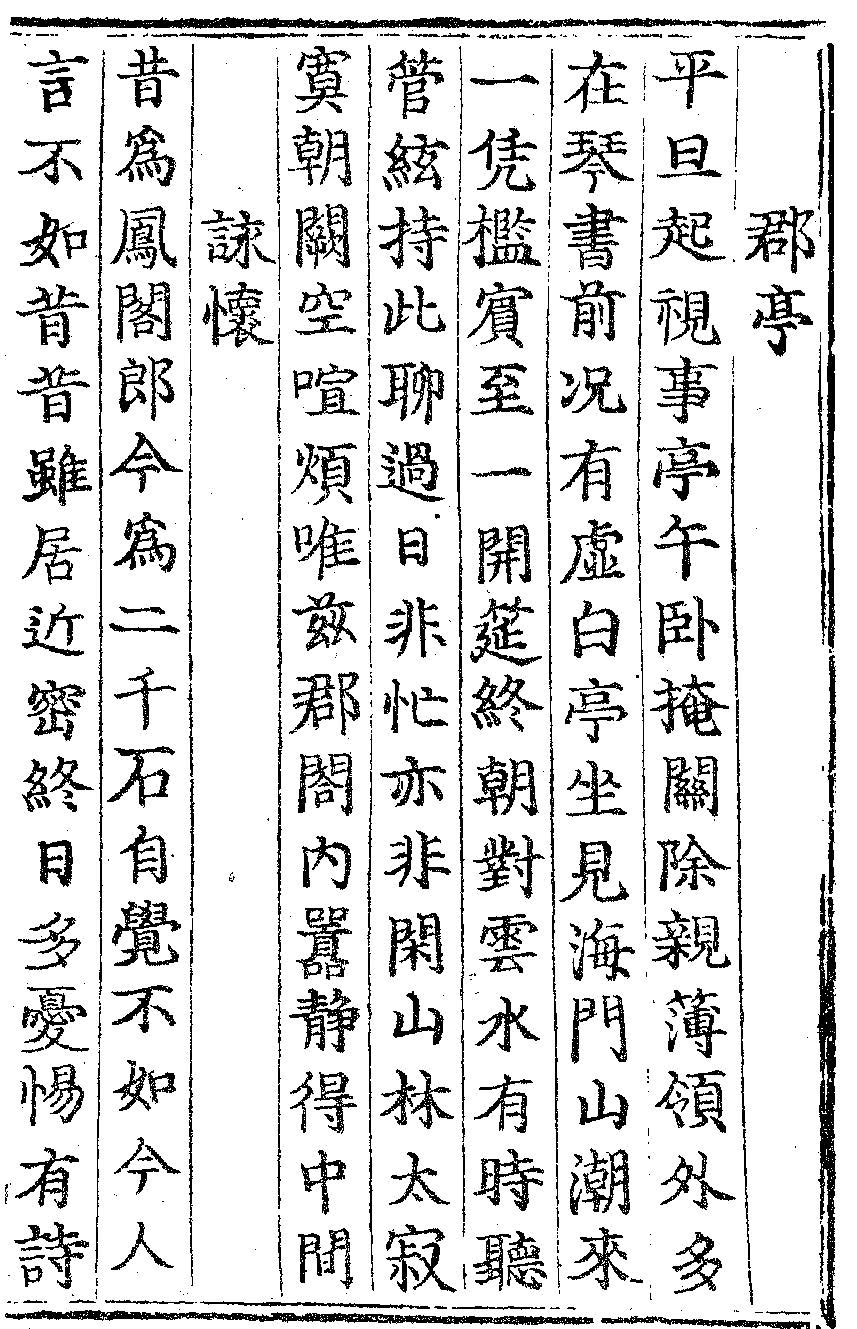 郡亭
平旦起視事亭午卧掩關除親薄領外多
在琴書前况有虛白亭坐見海門山潮來
一凭檻賓至一開筵終朝對雲水有時聽
管絃持此聊過日非忙亦非閑山林太寂
寞朝闕空喧煩唯兹郡閤内囂静得中間
詠懷
昔爲鳳閣郎今爲二千石自覺不如今人
言不如昔昔雖居近密終日多憂惕有詩